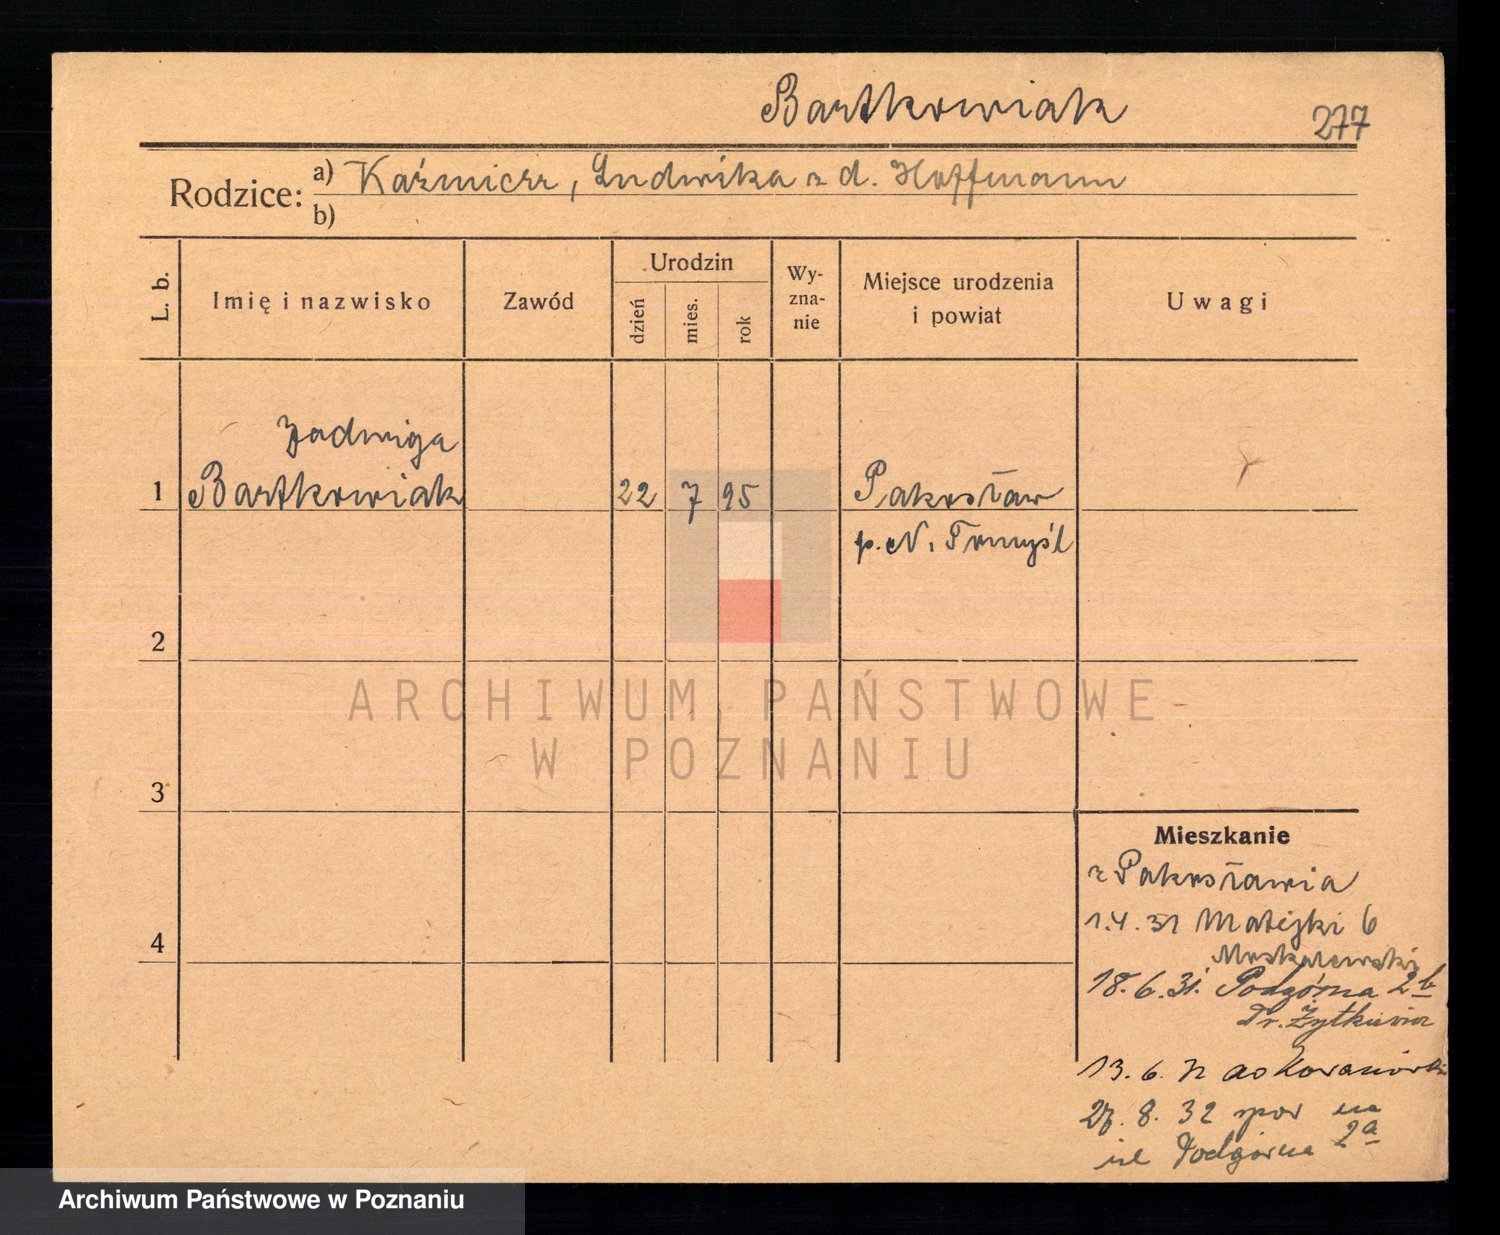 Bartkowiak
277
Rodzice: a) Kaźmierz, Ludwika z d. Hoffmann
b)
L. b.
Imię i nazwisko
Zawód
Urodzin
dzień
mies.
rok
Wy-
zna-
nie
Miejsce urodzenia
i powiat
Uwagi
Jadwiga
1 Bartkowiak 22 7 95 Pakosław
p. N. Tomyśl
2
ARCHIWUM PAŃSTWOWE
W POZNANIU
3
Mieszkanie
z Pakosławia
1.4.31 Matejki 6
4
18.6.31. Podgórna 2b
Dr. Żytkiewicz
13.6.
27.8.32 na
ul Podgórna 2a
Archiwum Państwowe w Poznaniu